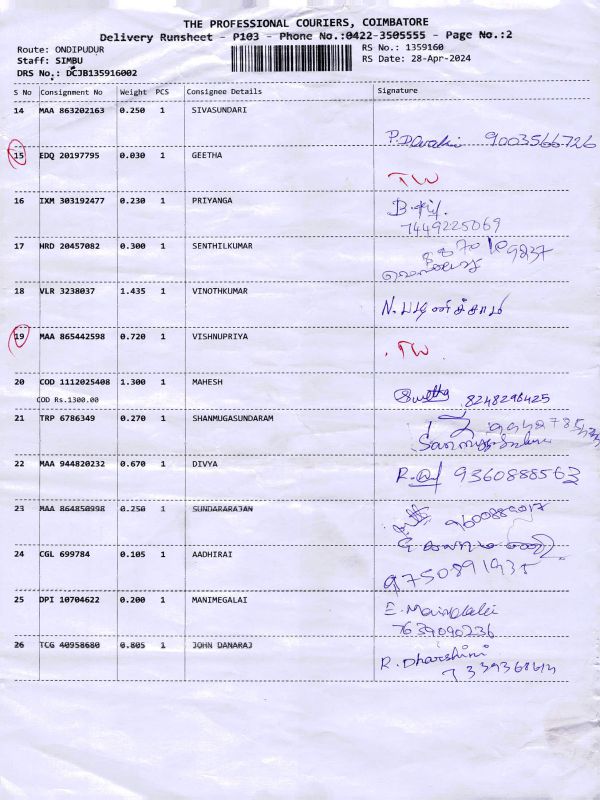 THE PROFESSIONAL COURIERS, COIMBATORE
Delivery Runsheet - P103 - Phone No.:0422-3505555 - Page No.:2
Route: ONDIPUDUR RS No.: 1359160
Staff: SIMBU RS Date: 28-Apr-2024
DRS No.: DCJB135916002
S No Consignment No Weight PCS Consignee Details Signature
14 MAA 863202163 0.250 1 SIVASUNDARI
9003566726
15 EDQ 20197795 0.030 1 GEETHA
TW
16 IXM 303192477 0.230 1 PRIYANGA
7449225069
17 HRD 20457082 0.300 1 SENTHILKUMAR
18 VLR 3238037 1.435 1 VINOTHKUMAR
19 MAA 865442598 0.720 1 VISHNUPRIYA
TW
20 COD 1112025408 1.300 1 MAHESH
8248296425
COD Rs.1300.00
21 TRP 6786349 0.270 1 SHANMUGASUNDARAM
22 MAA 944820232 0.670 1 DIVYA
9360888563
23 MAA 864850998 0.250 1 SUNDARARAJAN
9600889017
24 CGL 699784 0.105 1 AADHIRAI
25 DPI 10704622 0.200 1 MANIMEGALAI
7639090236
26 TCG 40958680 0.805 1 JOHN DANARAJ
R. Dharshini